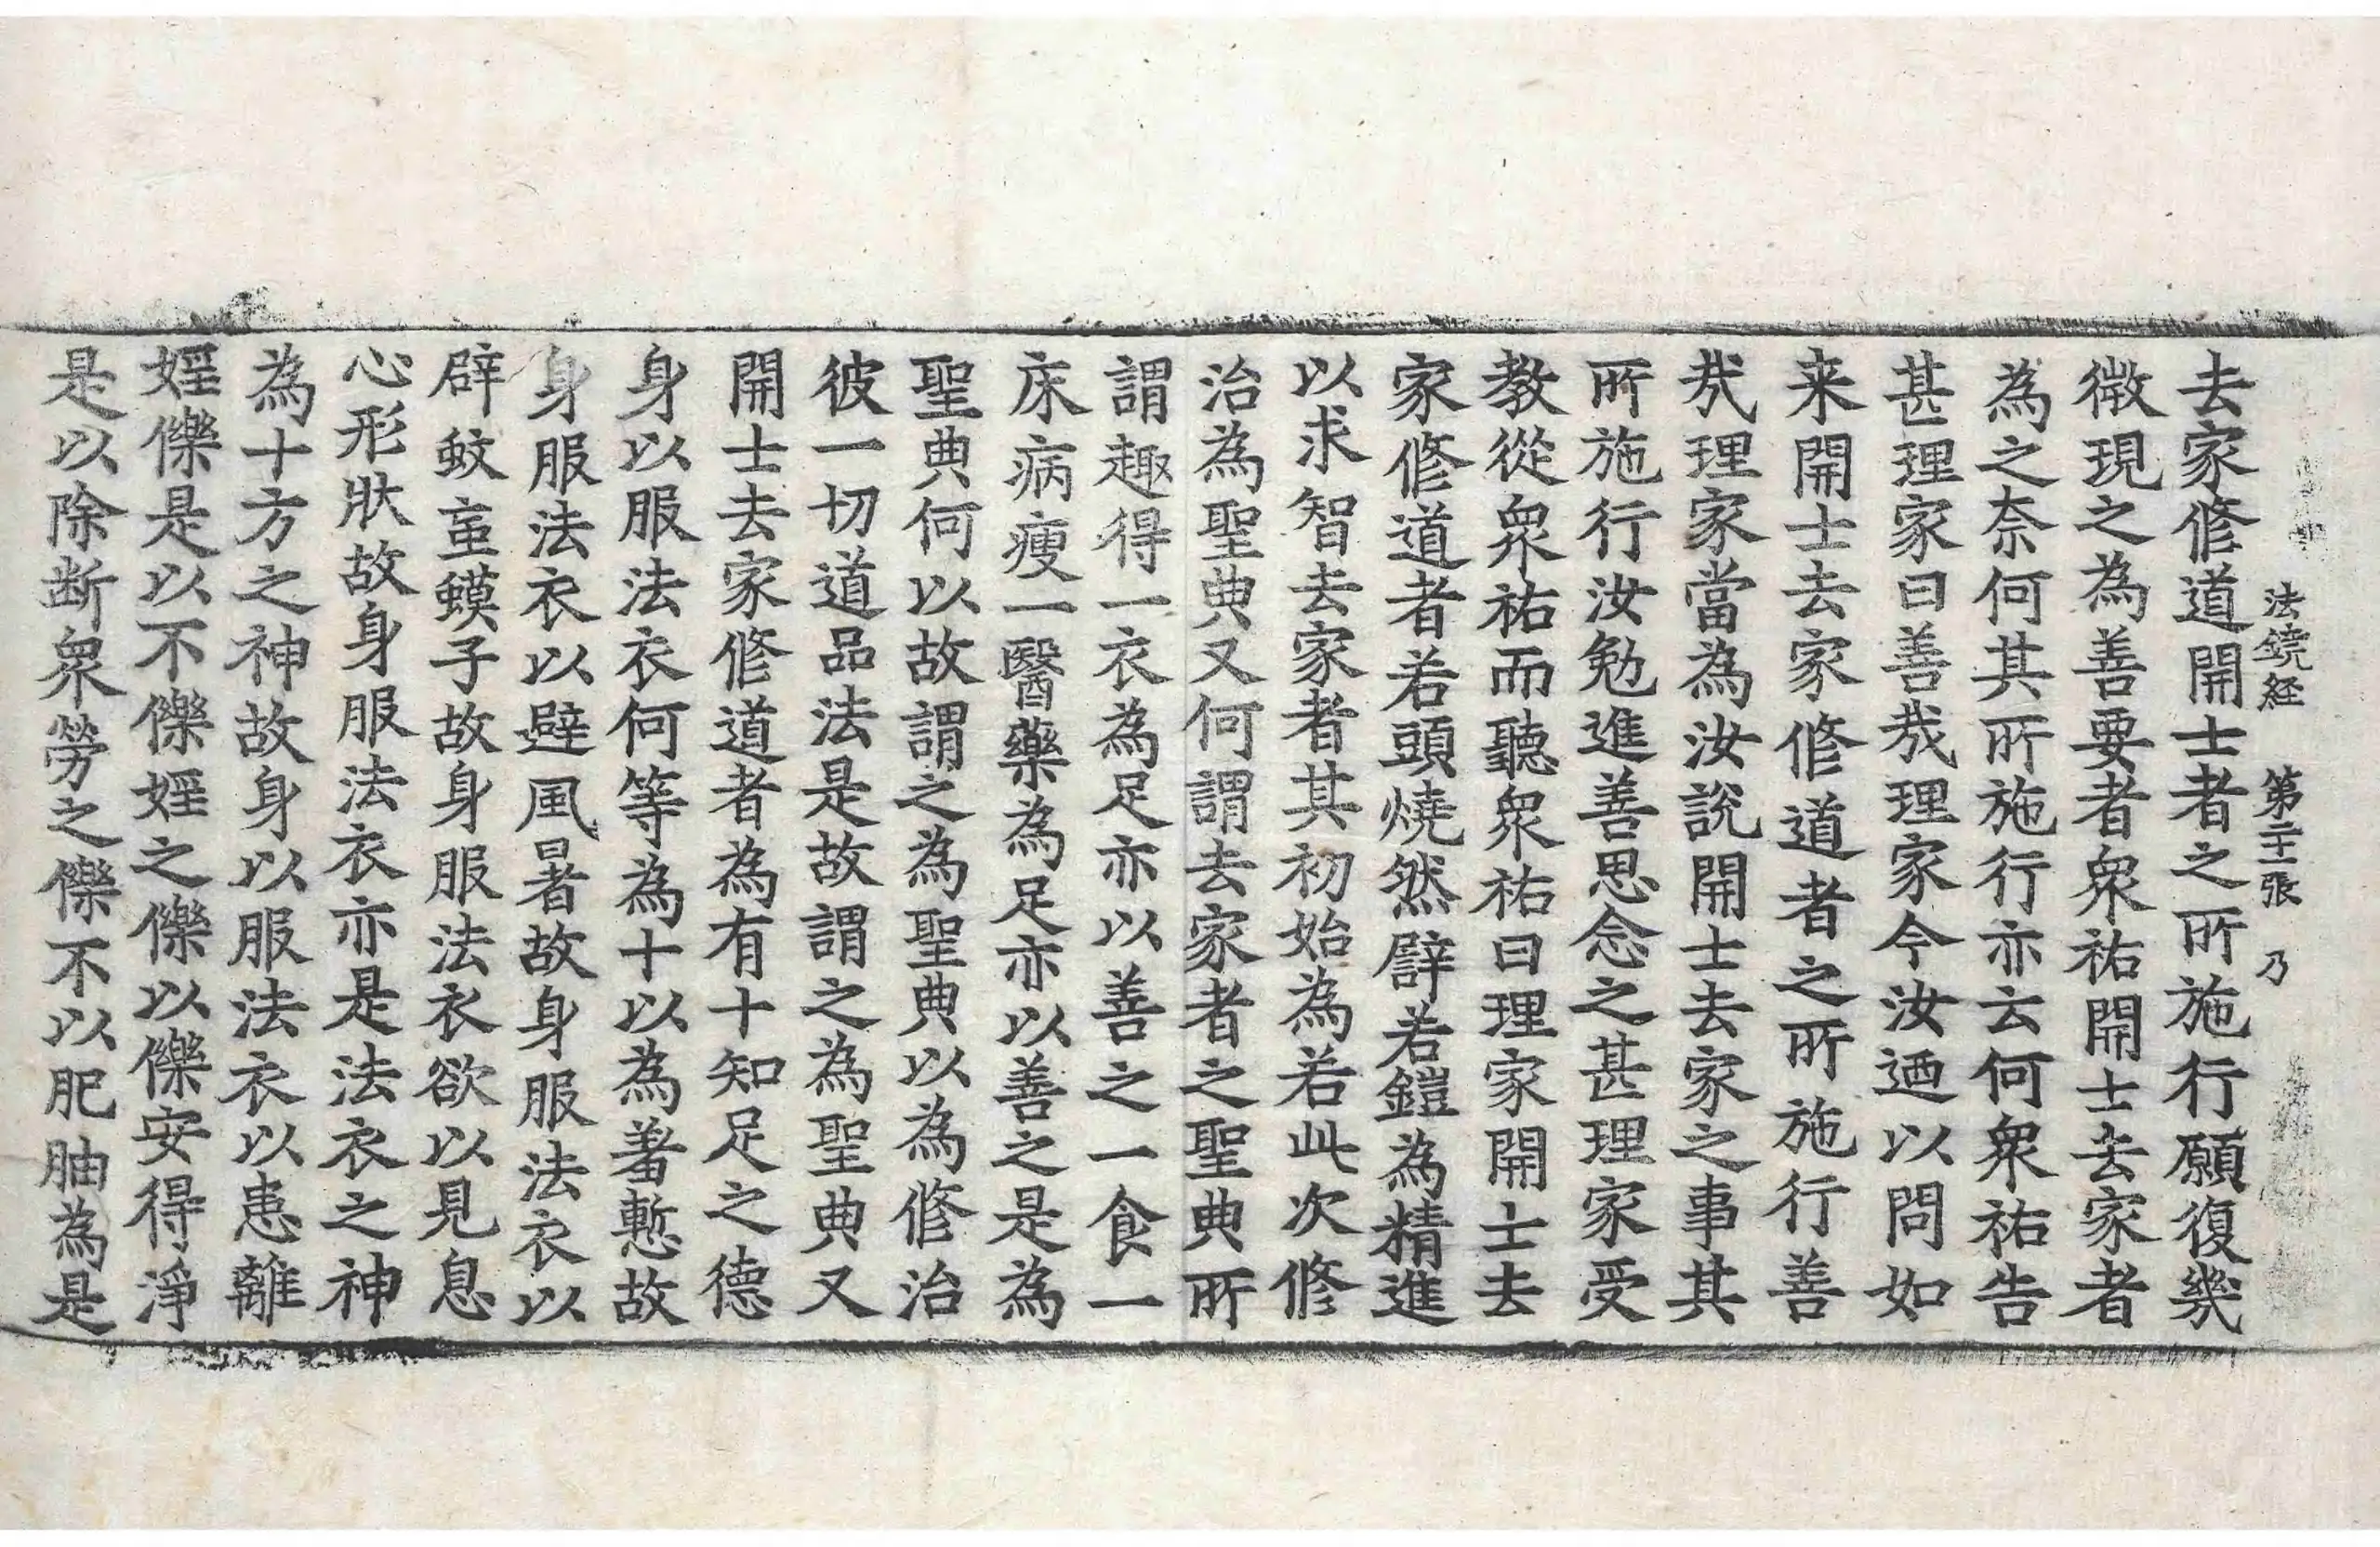 法鏡経　第二十一張　乃
去家修道開士者之所施行願復幾
徵現之為善要者衆祐開士去家者
為之奈何其所施行亦云何衆祐告
甚理家曰善㢤理家今汝迺以問如
来開士去家修道者之所施行善
㢤理家當為汝說開士去家之事其
所施行汝勉進善思念之甚理家受
教從衆祐而聽衆祐曰理家開士去
家修道者若頭燒然譬若鎧為精進
以求智去家者其初始為若此次修
治為聖典又何謂去家者之聖典所
謂趣得一衣為足亦以善之一食一
床病瘦一醫藥為足亦以善之是為
聖典何以故謂之為聖典以為修治
彼一切道品法是故謂之為聖典又
開士去家修道者為有十知足之德
身以服法衣何等為十以為羞慙故
身服法衣以避風暑故身服法衣以
辟蚊䖟蟆子故身服法衣欲以見息
心形狀故身服法衣亦是法衣之神
為十方之神故身以服法衣以患離
婬㦡是以不㦡婬之㦡以㦡安得淨
是以除断衆勞之㦡不以肥䏔為是